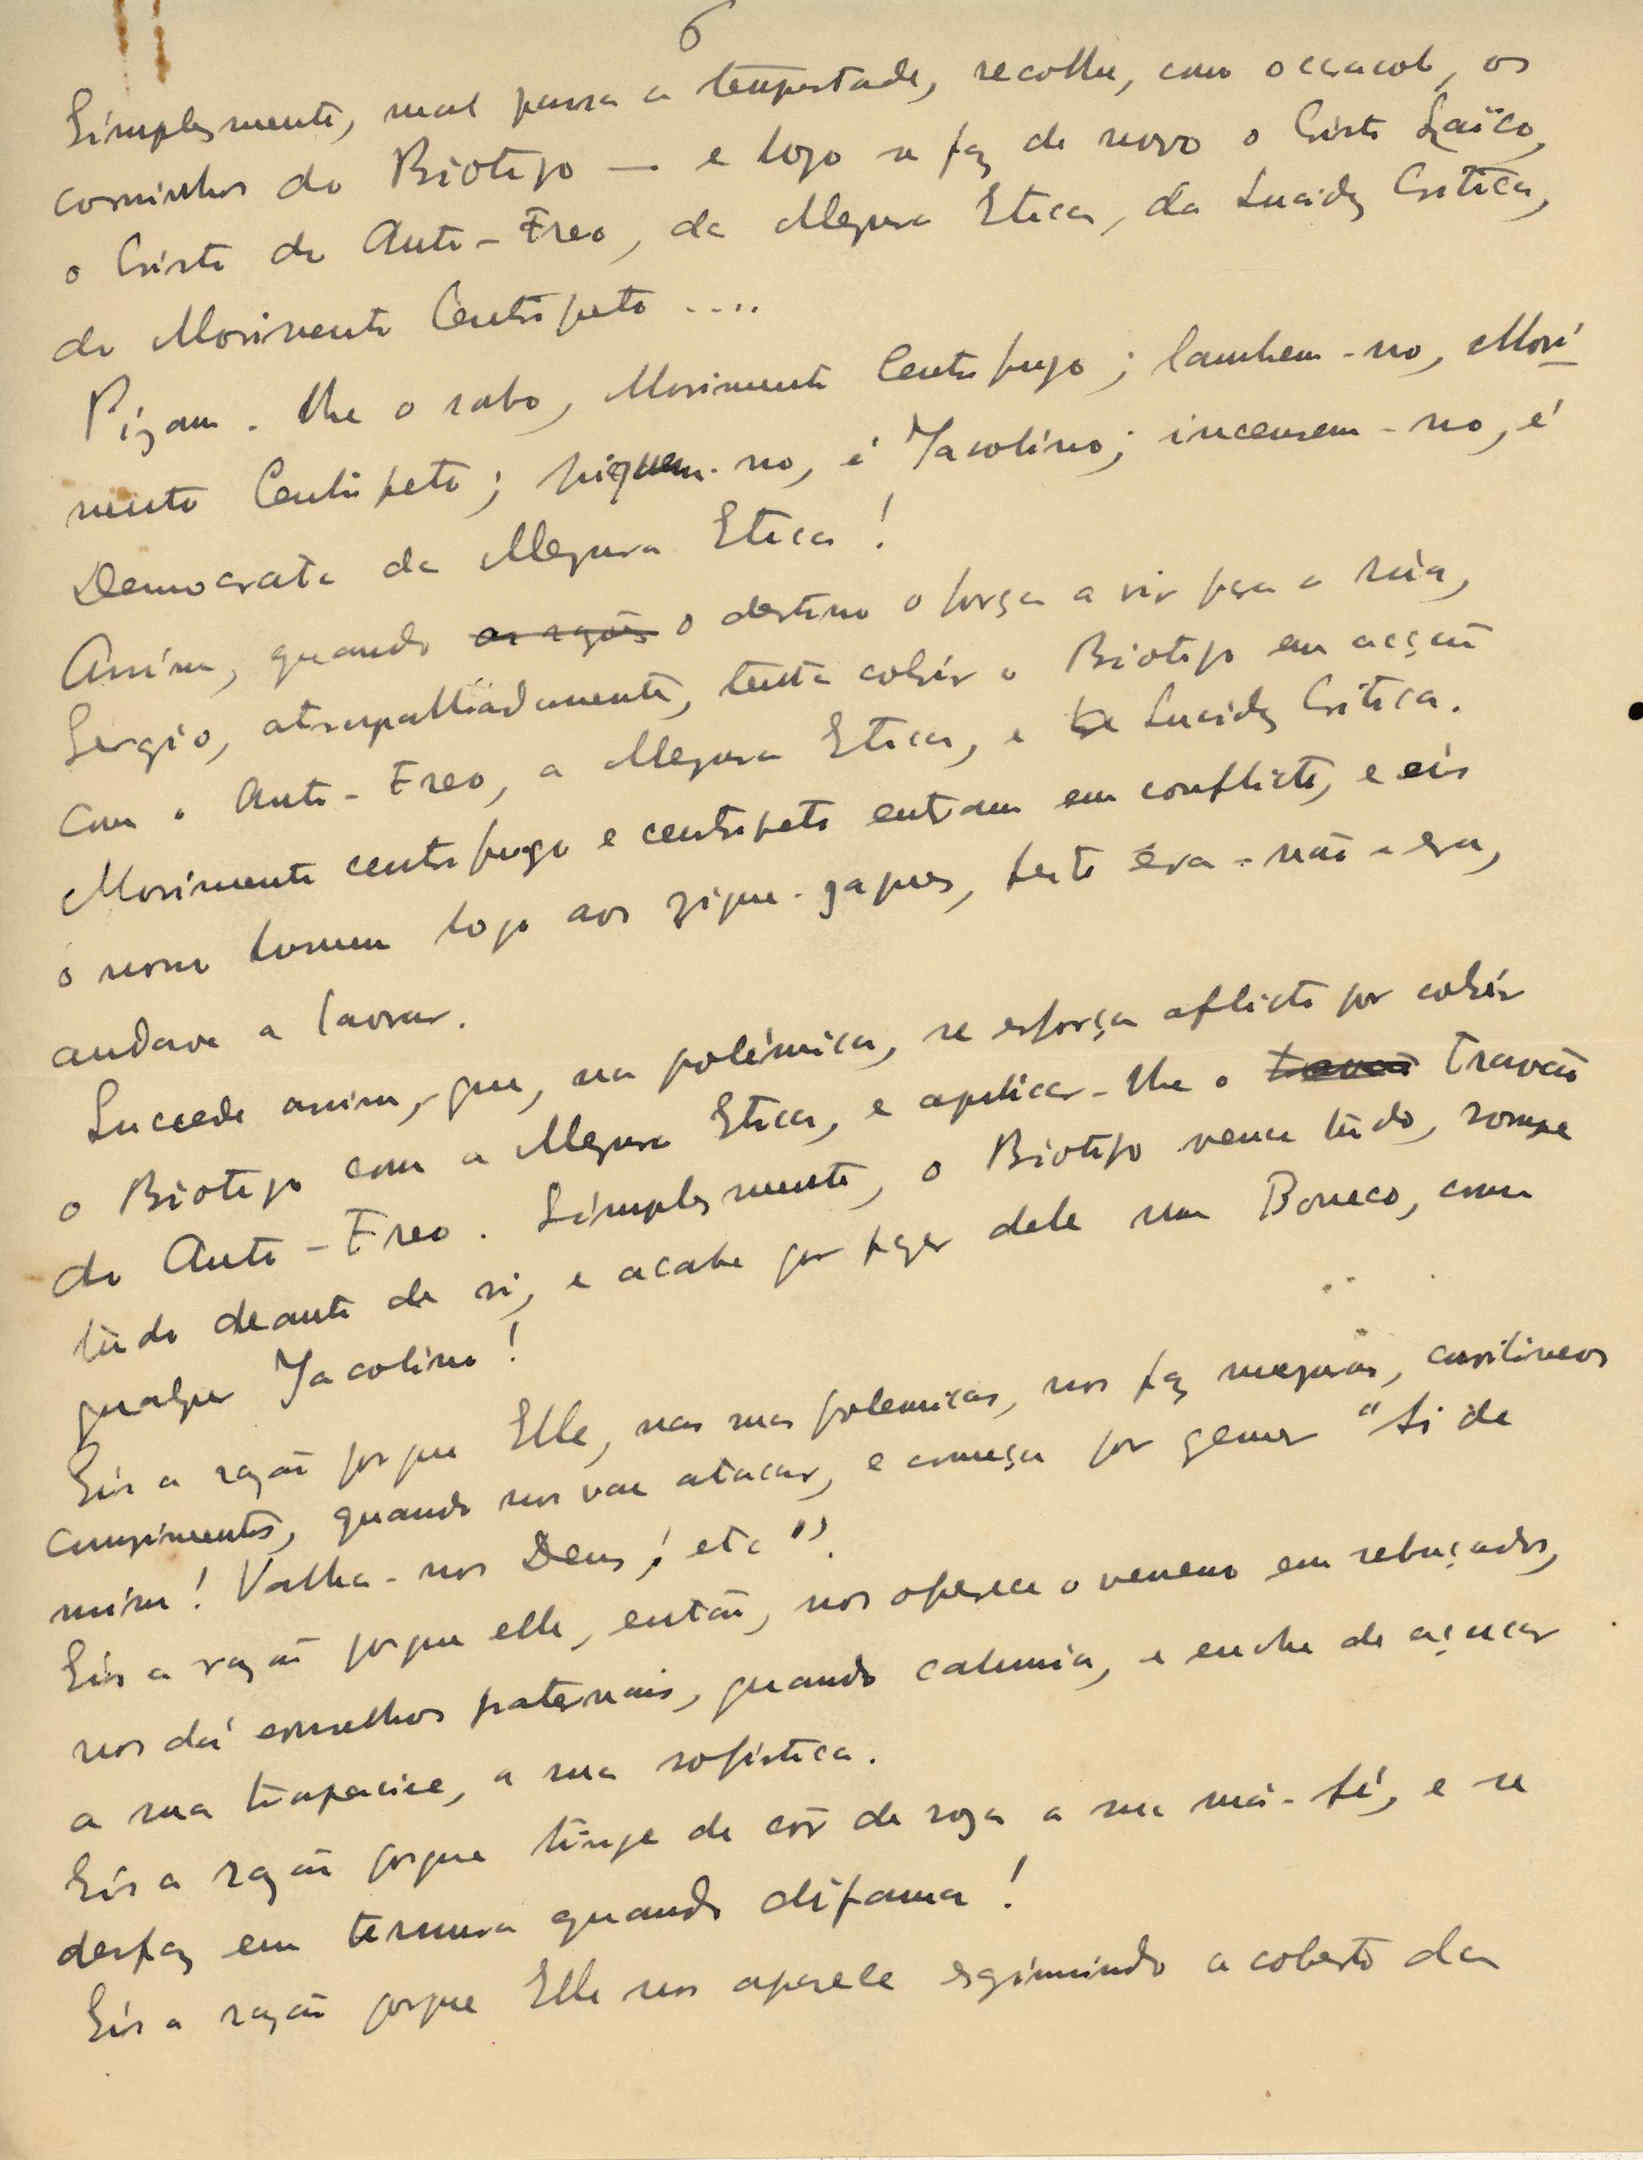 6
Simplesmente, mal passa a tempestade, recolhe, como o caracol, os
corninhos do Biotipo — e logo se faz de novo o Cristo Laïco,
o Cristo do Auto-Freo, da Megera Etica, da Lucidez Critica,
do Movimento Centripeto ....
Pizam-lhe o rabo, Movimento Centrifugo; lambem-no, Movi-
mento Centripeto; piquem-no, é Jacobino; incensem-no, é
Democrata da Megera Etica!
Assim, quando as razões o destino o força a vir para a rúa,
Sergio, atrapalhadamente, tenta cobrir o Biotipo em acção
com o Auto-Freo, a Megera Etica, e a Lucidez Critica.
Movimento centrifugo e centripeto entram em conflicto, e eis
o nosso homem logo aos zigue-zagues, feito éra-não-era,
andava a lavrar.
Succede assim, que, na polémica, se esforça aflicto por cobrir
o Biotipo com a Megera Etica, e aplicar-lhe o travão travão
do Auto-Freo. Simplesmente, o Biotipo vence túdo, rompe
túdo deante de si, e acaba por fazer dele um Boneco, como
qualquer Jacobino!
Eis a razão porque Elle, nas suas polemicas, nos faz mezuras,
cumprimentos, quando nos vae atacar, e começa por gemer "Ai de
mim! Valha-nos Deus! etc".
Eis a razão porque elle, então, nos oferece o veneno em rebuçados,
nos dá conselhos fraternais, quando calunia, e enche de açucar
a sua trapacice, a sua sofistica.
Eis a razão porque tinge de côr de roza a sua má-fé, e se
desfaz em ternura quando difama!
Eis a razão porque Elle nos aparece esgrimindo a coberto da